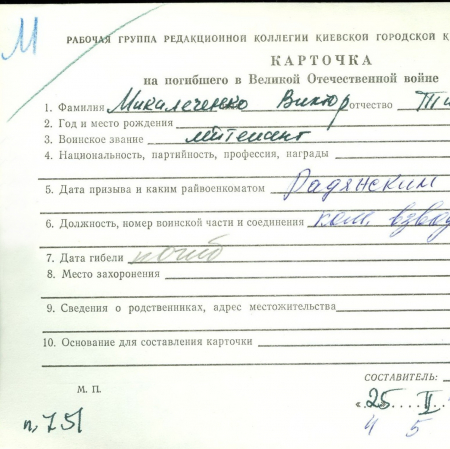 М
РАБОЧАЯ ГРУППА РЕДАКЦИОННОЙ КОЛЛЕГИИ КИЕВСКОЙ ГОРОДСКОЙ К
КАРТОЧКА
на погибшего в Великой Отечественной войне
1. Фамилия Михалеченко Виктор отчество Ти
2. Год и место рождения
3. Воинское звание лейтенант
4. Национальность, партийность, профессия, награды
5. Дата призыва и каким райвоенкоматом Радянским
6. Должность, номер воинской части и соединения ком. взвода
7. Дата гибели погиб
8. Место захоронения
9. Сведения о родственниках, адрес местожительства
10. Основание для составления карточки
СОСТАВИТЕЛЬ:
М. П.
«25 II
п. 751
4 5